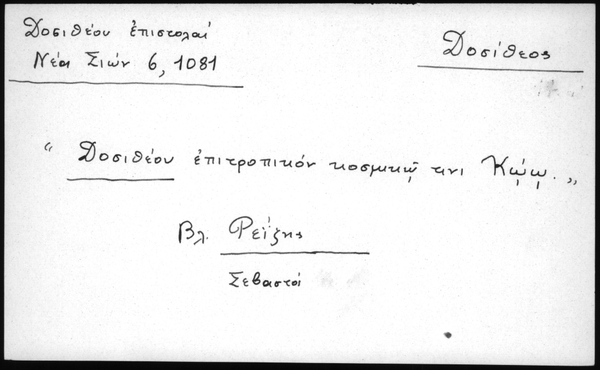 Δοσιθέου ἐπιστολαί
Νέα Σιών 6, 1081
Δοσίθεος
"Δοσιθέου ἐπιτροπικόν κοσμικῷ τινι Κῴῳ."
Βλ. Ρεΐζης
Σεβαστοί